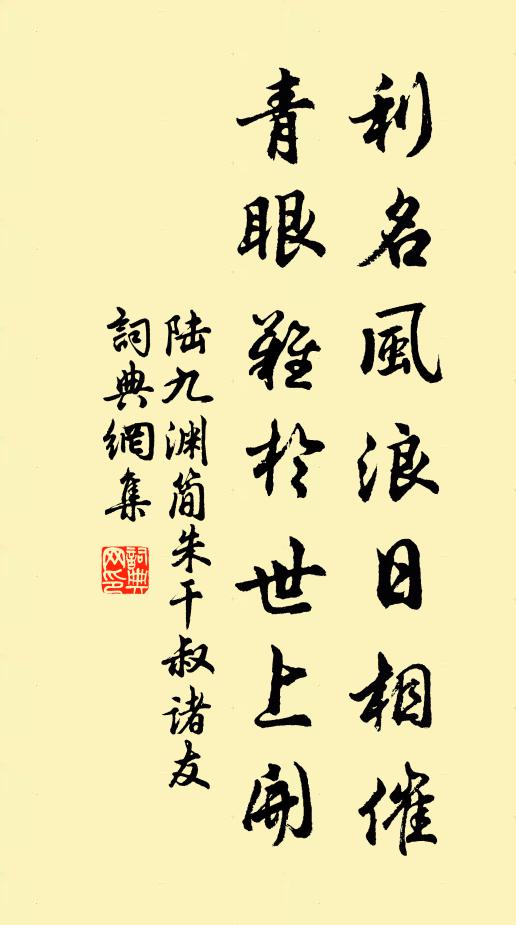 利名風浪日相催
青眼難於世上開
陆九渊简朱干叔诸友
詞典網集
詞典网印